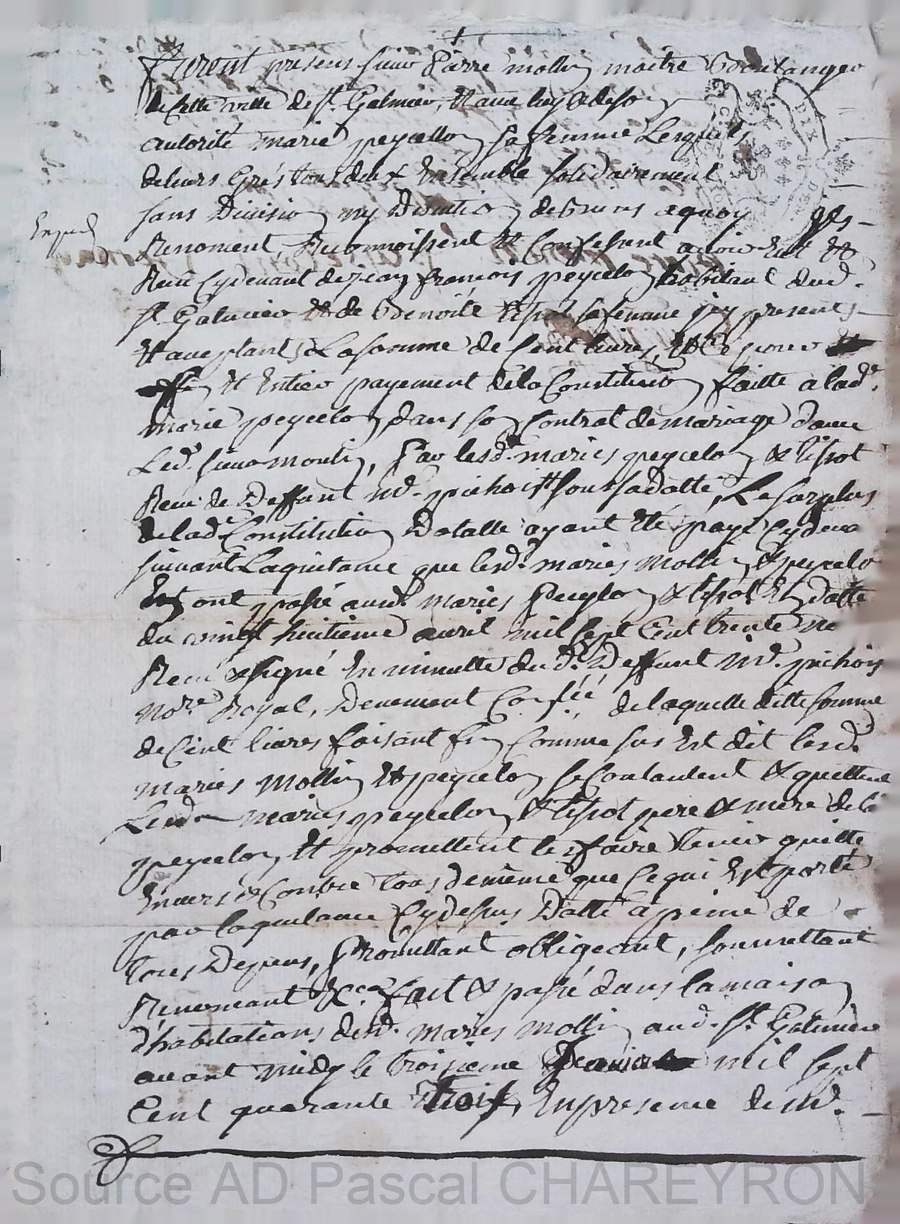 furent presens sieur pierre mollin maitre Boulanger
de cette ville de st. Galmier, et avec luy & de son
autorité marie peycellon sa femme Lesquels
de leurs Grés tous deux Ensemble solidairement
sans Division ny Discution de Biens a quoy Ils
Renoncent Reconnoissent et Confessent avoir Eut et
Receu Cydevant de jean françois peycelon habitant dud.
st. Galmier et de Benoite tissot sa femme icy presents
et acceptants La somme de Cent livres, et Ce pour
fin et Entier payement de la Constitution faitte à lad.
marie peycelon dans son Contrat de mariage d'avec
Led. sieur mollin, par lesd. maries peycelon & tissot
Receu de Deffunt Me. pichois sous sa datte, Le surplus
de lad. Constitution Dotalle ayant Eté payé Cydevant
suivant La quitance que lesd. maries mollin & peycelon
En ont passé auxd. maries peycelon & tissot En datte
du vingt huitieme avril mil sept Cent trente
Receu & signé En minutte dud. Deffunt Me. pichois
Nore. Royal, Deuement Conllé, de laquelle ditte somme
de Cent livres faisant fin Comme sus Est dit lesd.
maries mollin et peycelon se Contentent & quittent
Lesd. maries peycelon & tissot pere & mere de la
peycelon, et promettent les faire tenir quitte
Envers & Contre tous de meme que Ce qui Est porté
par la quitance Cy dessus Datté a peine de
tous Depens, Promettant obligeant, soumettant
Renoncant &cea fait & passé dans la maison
d'habitations desd. maries mollin aud. st. Galmier
avant midy le troisieme mil sept
Cent quarante trois, En presence de Me.
Source AD Pascal CHAREYRON